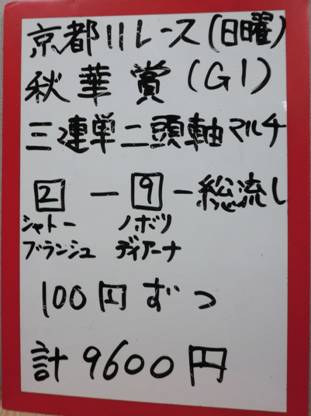 京都11レース(日曜)
秋華賞(G1)
三連単二頭軸マルチ
2-9-総流し
シャトー ノボリ
ブランシュ ディアーナ
100円ずつ
計9600円